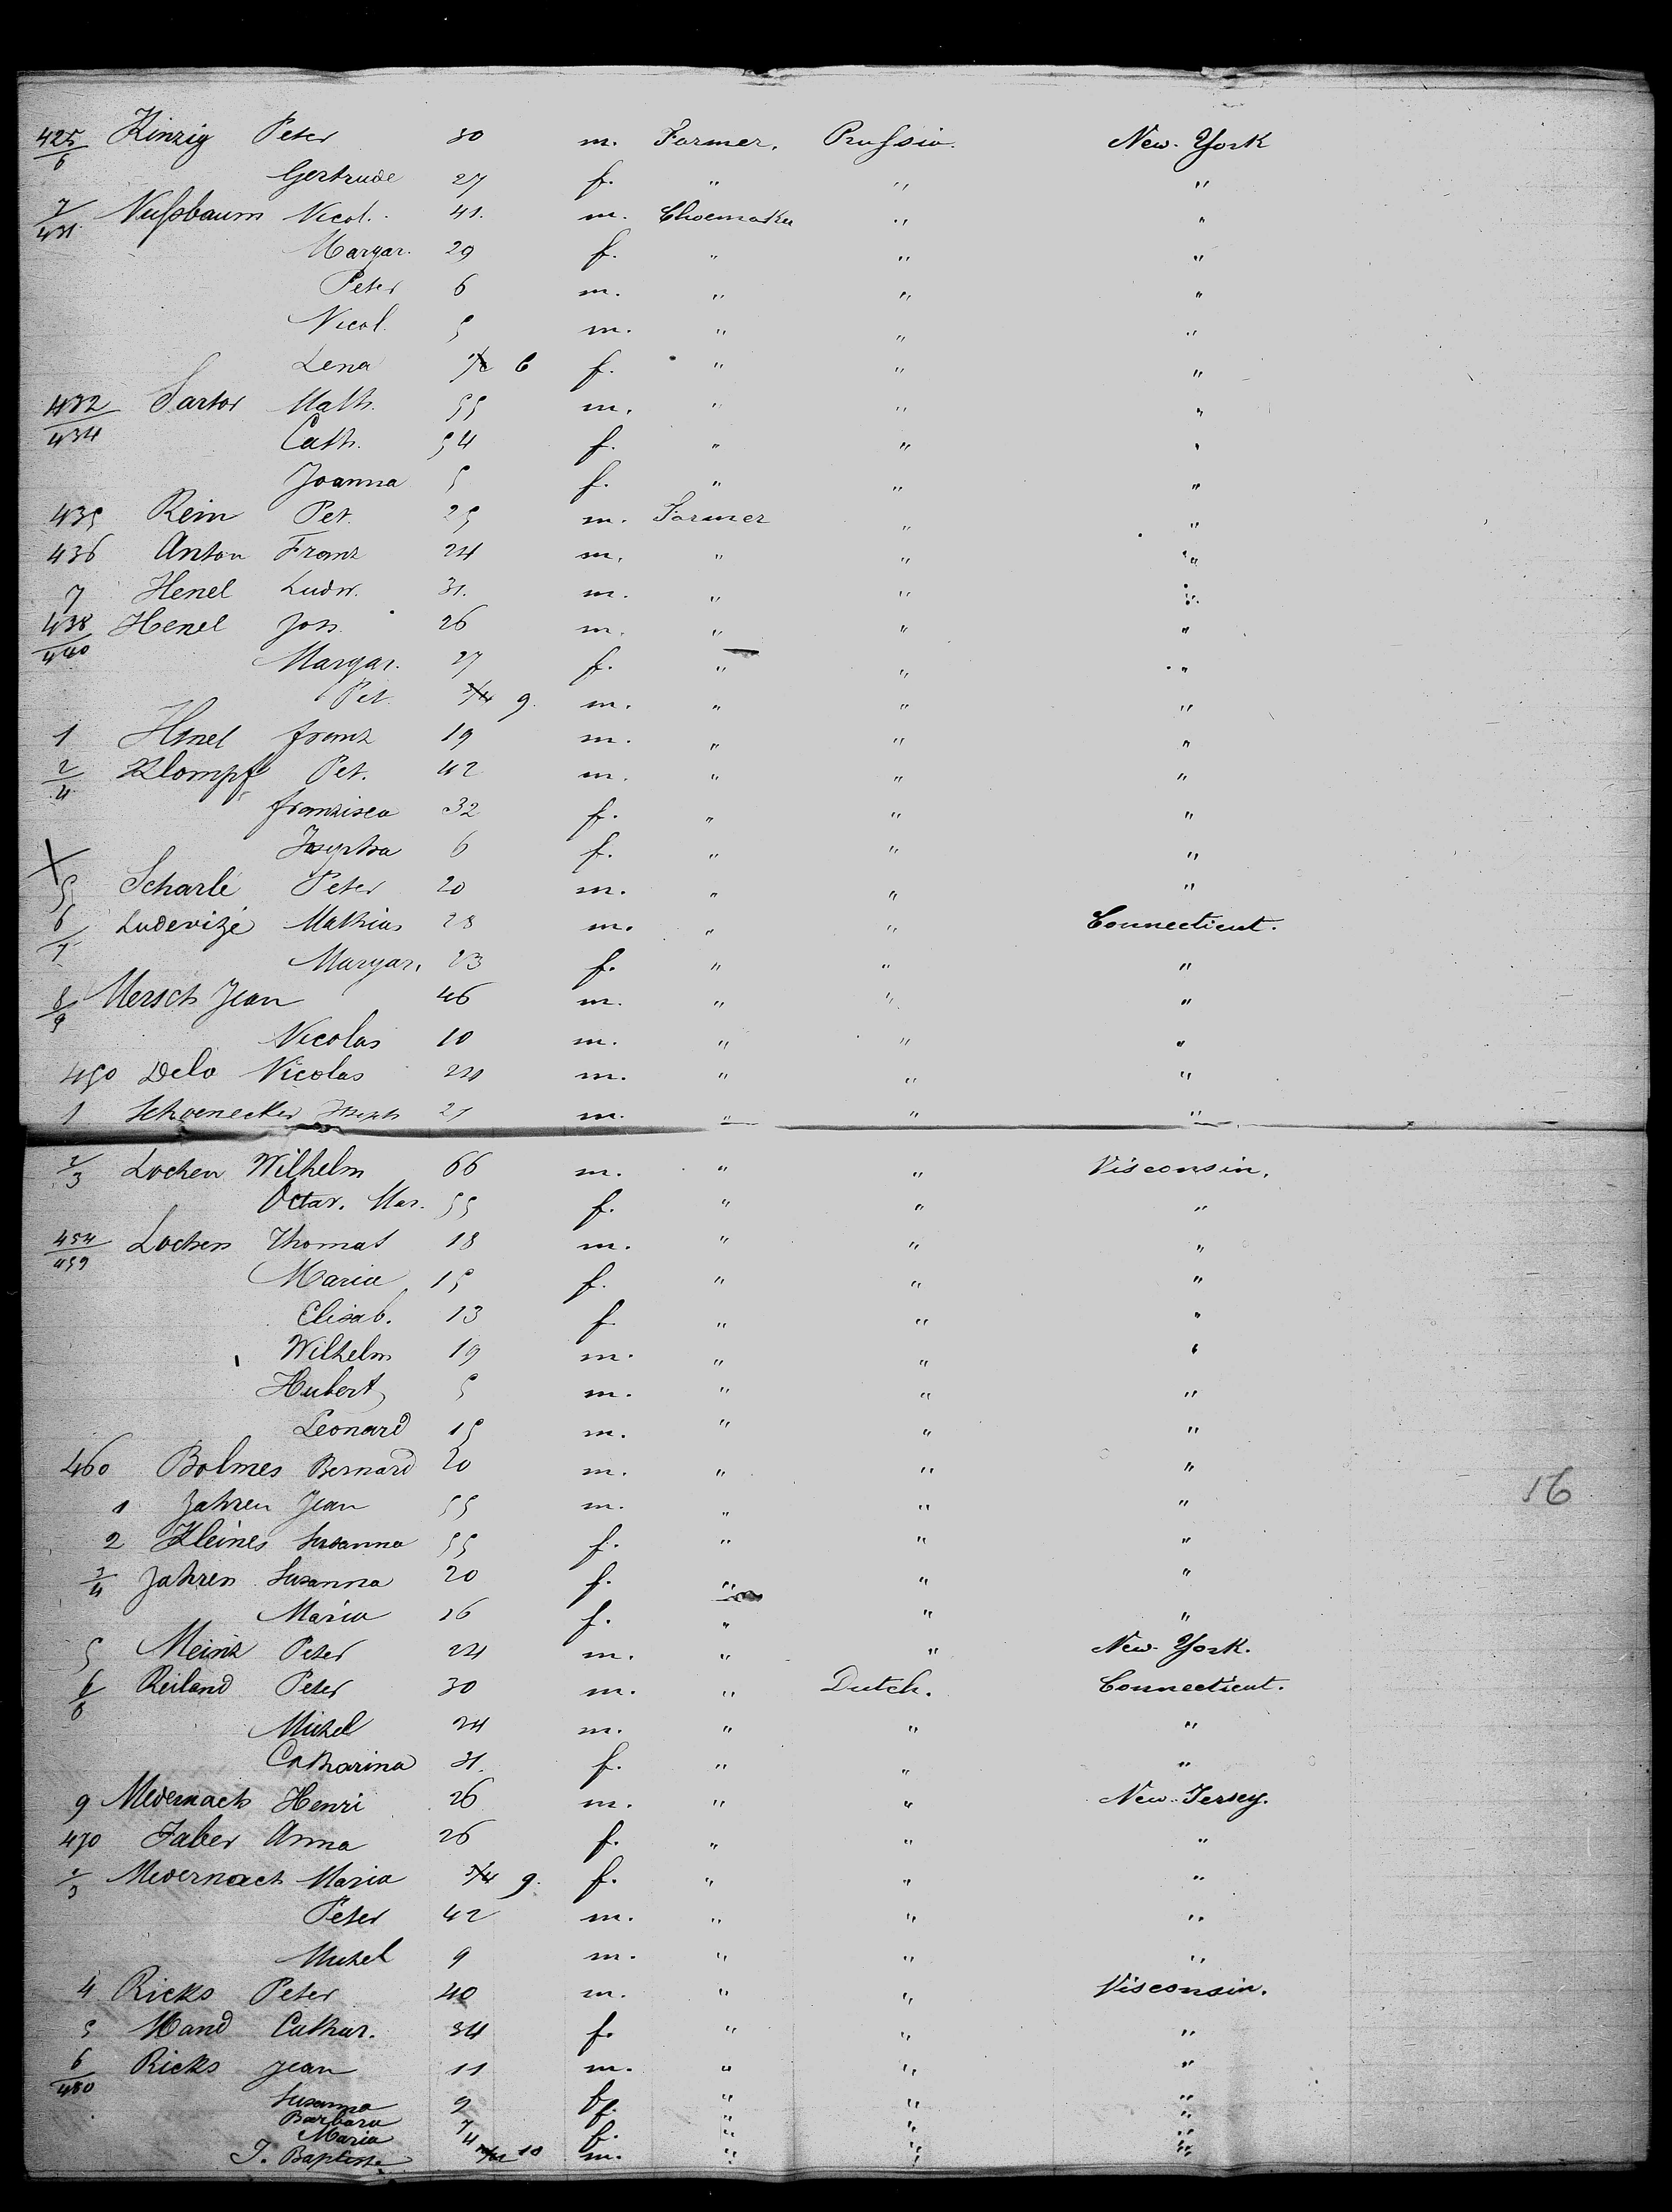 425/6 Kinzig Peter 30 m. Farmer. Prussia. New-York
Gertrude 27 f. " " "
7/431 Nußbaum Nicol. 41. m. Choemaker " "
Margar. 29 f. " " "
Peter 6 m. " " "
Nicol. 5 m. " " "
Lena 6 f. " " "
432/434 Sartor Math. 55 m. " " "
Cath. 54 f. " " "
Joanna 5 f. " " "
435 Rein Pet. 25 m. Farmer " "
436 Anton Franz 24 m. " " "
7 Henel Ludw. 31. m. " " "
438/440 Henel Jos. 26 m. " " "
Margar. 27 f. " " "
Pet. 3/4 9. m. " " "
1 Henel Franz 19 m. " " "
2/4 Klompf Pet. 42 m. " " "
Franzisca 32 f. " " "
Josepha 6 f. " " "
5 Scharle Peter 20 m. " " "
6/7 Ludevizé Mathias 28 m. " " Connecticut.
Margar. 23 f. " " "
8/9 Mersch Jean 46 m. " " "
Nicolas 10 m. " " "
450 Delo Nicolas 24 m. " " "
1 Schoenecker Joseph 21 m. " " "
2/3 Lochen Wilhelm 66 m. " " Visconsin.
Octav. Mar. 55 f. " " "
454/459 Lochen Thomas 18 m. " " "
Maria 15 f. " " "
Elisab. 13 f. " " "
Wilhelm 19 m. " " "
Hubert 5 m. " " "
Leonard 15 m. " " "
460 Bolmes Bernard 20 m. " " "
16
1 Jahren Jean 55 m. " " "
2 Kleines Susanna 55 f. " " "
3/4 Jahren Susanna 20 f. " " "
Maria 16 f. " " "
5 Meinz Peter 24 m. " " New-York.
6/8 Reiland Peter 30 m. " Dutch. Connecticut.
Michel 24 m. " " "
Catharina 31. f. " " "
9 Medernach Henri 26 m. " " New-Jersey.
470 Faber Anna 26 f. " " "
1/3 Medernach Maria 3/4 9. f. " " "
Peter 42 m. " " "
Michel 9 m. " " "
4 Ricks Peter 40 m. " " Visconsin.
5 Mand Cathar. 34 f. " " "
6/480 Ricks Jean 11 m. " " "
Susanna 9 f. " " "
Barbara 7 f. " " "
Maria 4 f. " " "
J. Baptiste 10 m. " " "